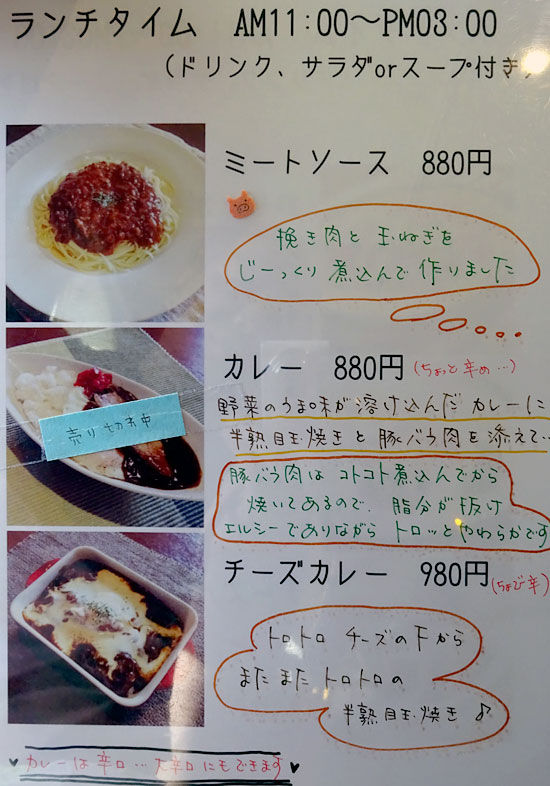 ランチタイム AM11:00〜PM03:00
(ドリンク、サラダorスープ付き)
ミートソース 880円
挽き肉と玉ねぎを
じーっくり煮込んで作りました
カレー 880円(ちょっと辛め…)
野菜のうま味が溶け込んだカレーに
半熟目玉焼きと豚バラ肉を添えて…
売り切れ中
豚バラ肉はコトコト煮込んでから
焼いてあるので、脂分が抜け
エルシーでありながらトロッとやわらかです
チーズカレー 980円(ちょび辛)
トロトロチーズの下から
またまたトロトロの
半熟目玉焼き♪
♥カレーは辛口…大辛口にもできます♥